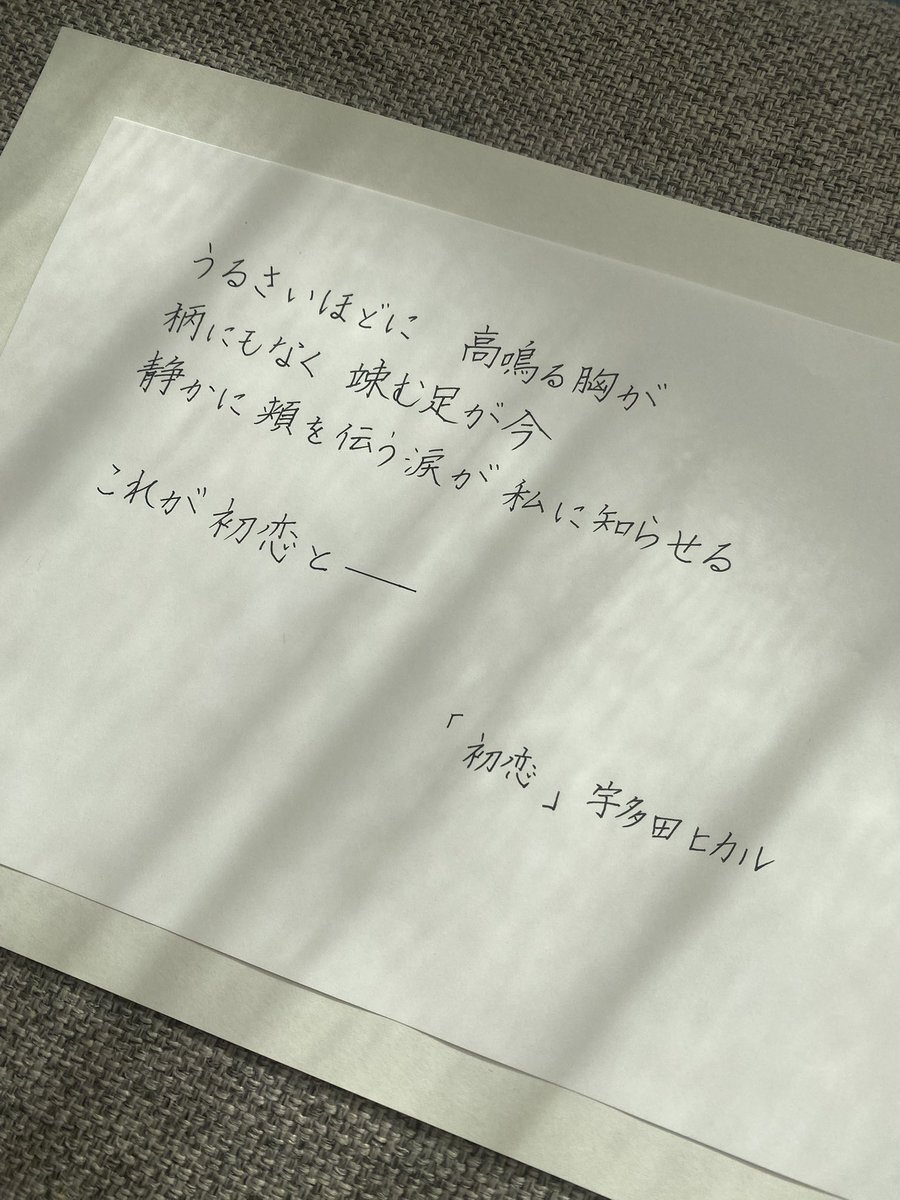 うるさいほどに　高鳴る胸が
柄にもなく　竦む足が今
静かに頬を伝う涙が　私に知らせる
これが初恋と――
「初恋」宇多田ヒカル